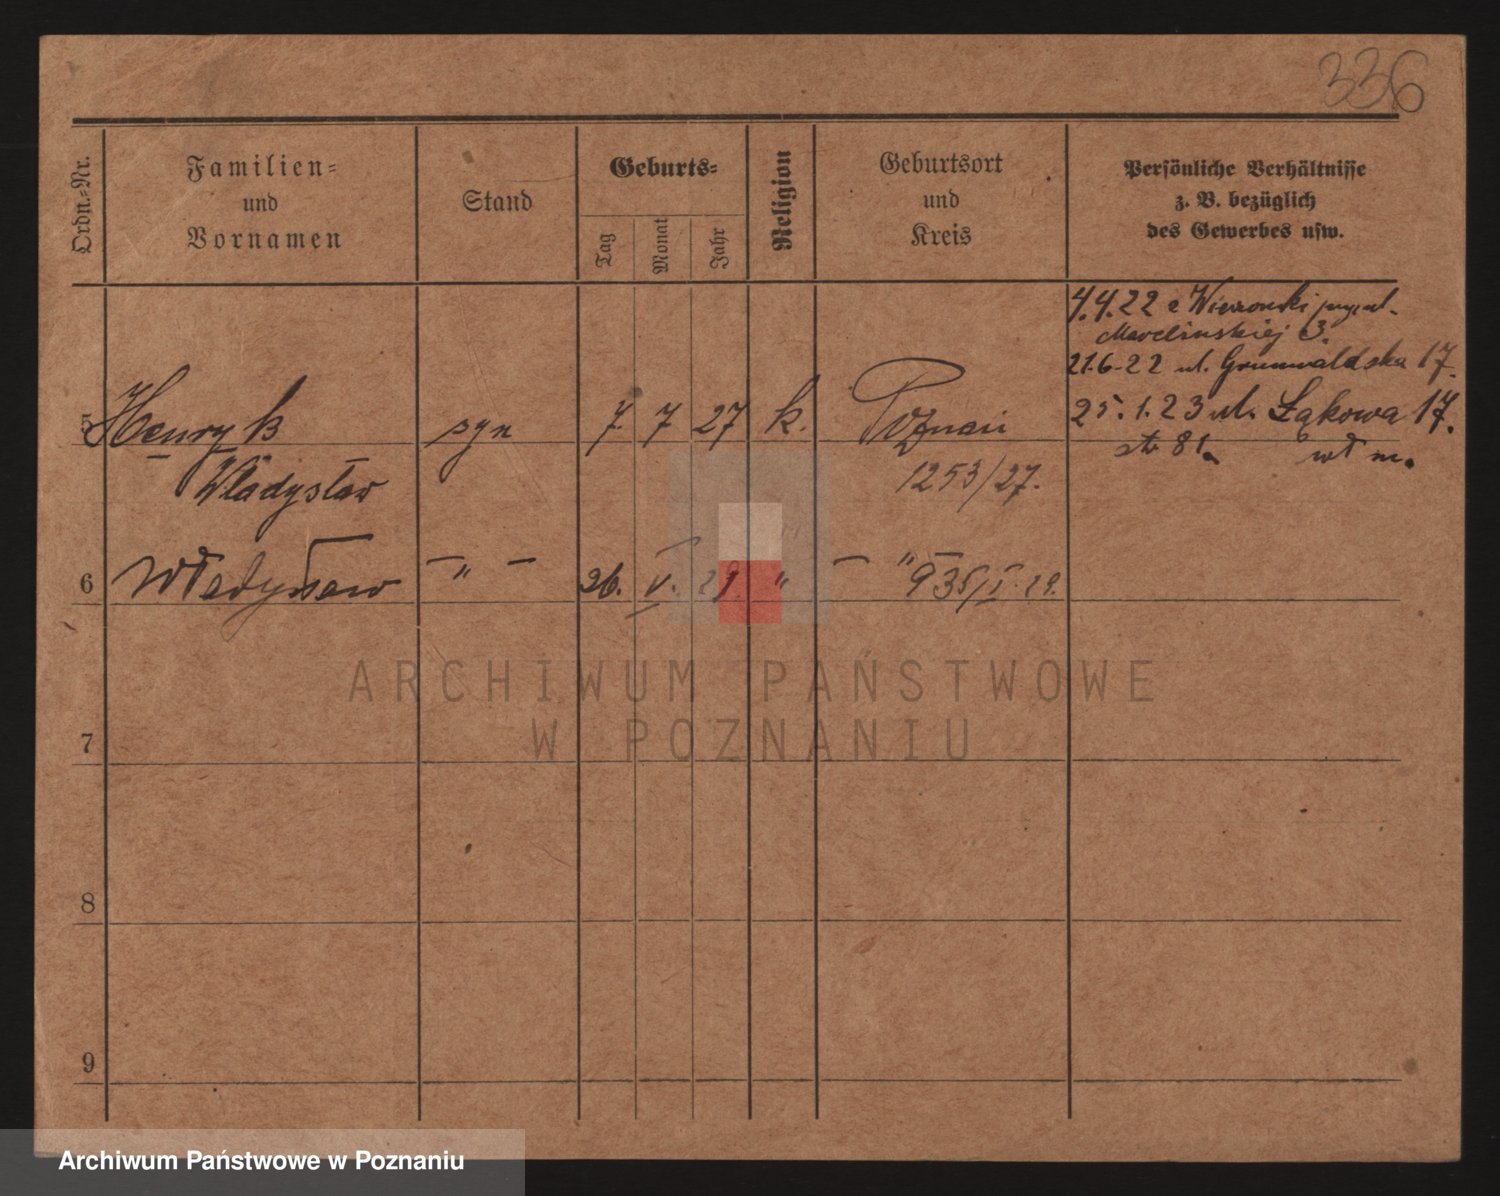 336
Ordn.-Nr.
Familien-
und
Vornamen
Stand
Geburts-
Tag
Monat
Jahr
Religion
Geburtsort
und
Kreis
Persönliche Verhältnisse
z. B. bezüglich
des Gewerbes usw.
4.4.22 z
Marcelinskiej 3.
21.6-22 ul. Grunwaldska 17.
25.1.23 ul. Łąkowa 17.
81. wł m.
5 Henryk syn 7 7 27 k. Poznań
Władysław 1253/27.
6 Władysław — " — 26. V. 29. " — " — 935/I. 29.
7
8
9
ARCHIWUM PAŃSTWOWE
W POZNANIU
Archiwum Państwowe w Poznaniu